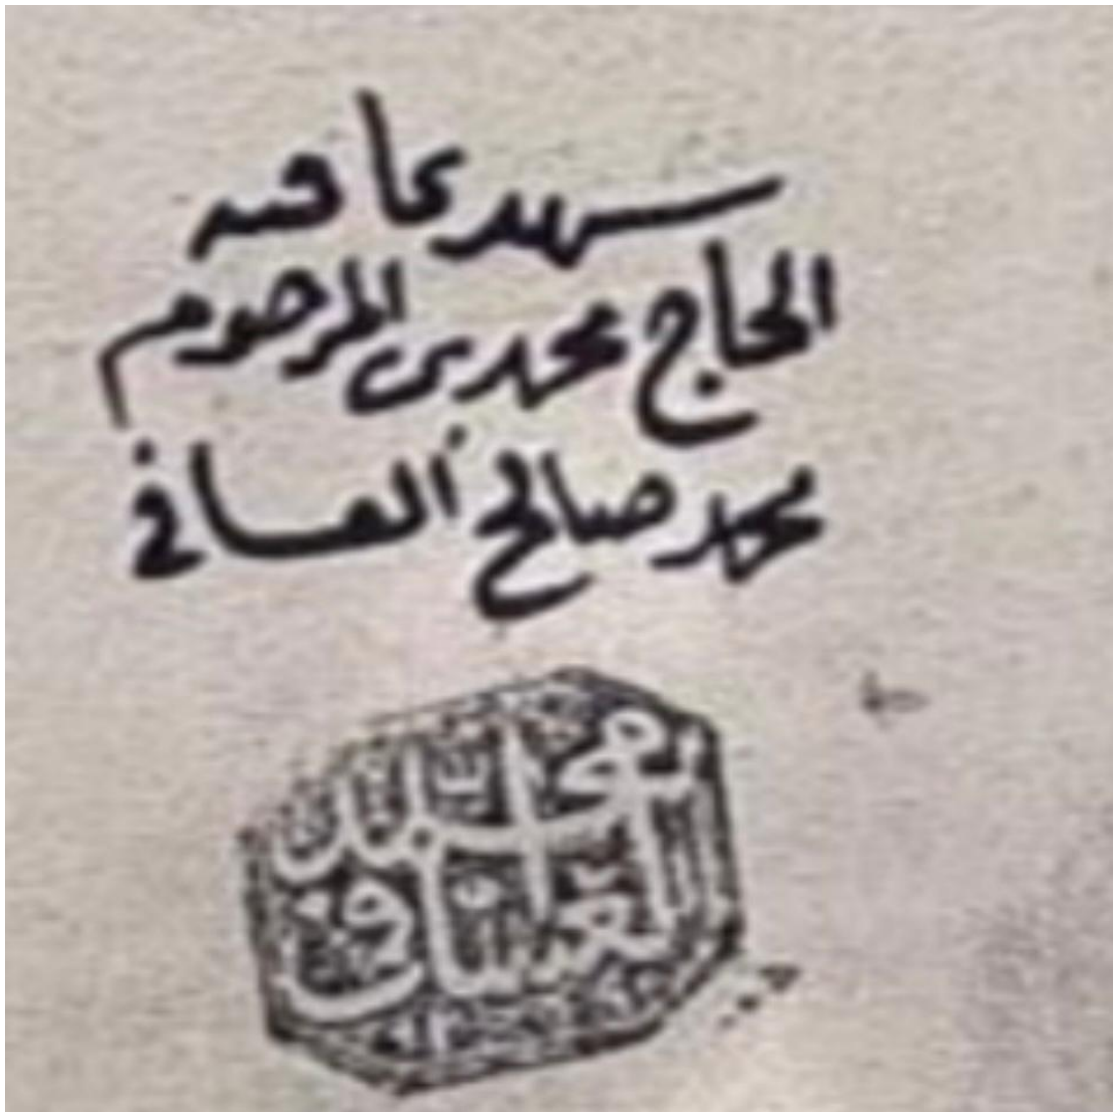 شهد بما فيه
الحاج محمد بن المرحوم
محمد صالح العسافي
العسافي